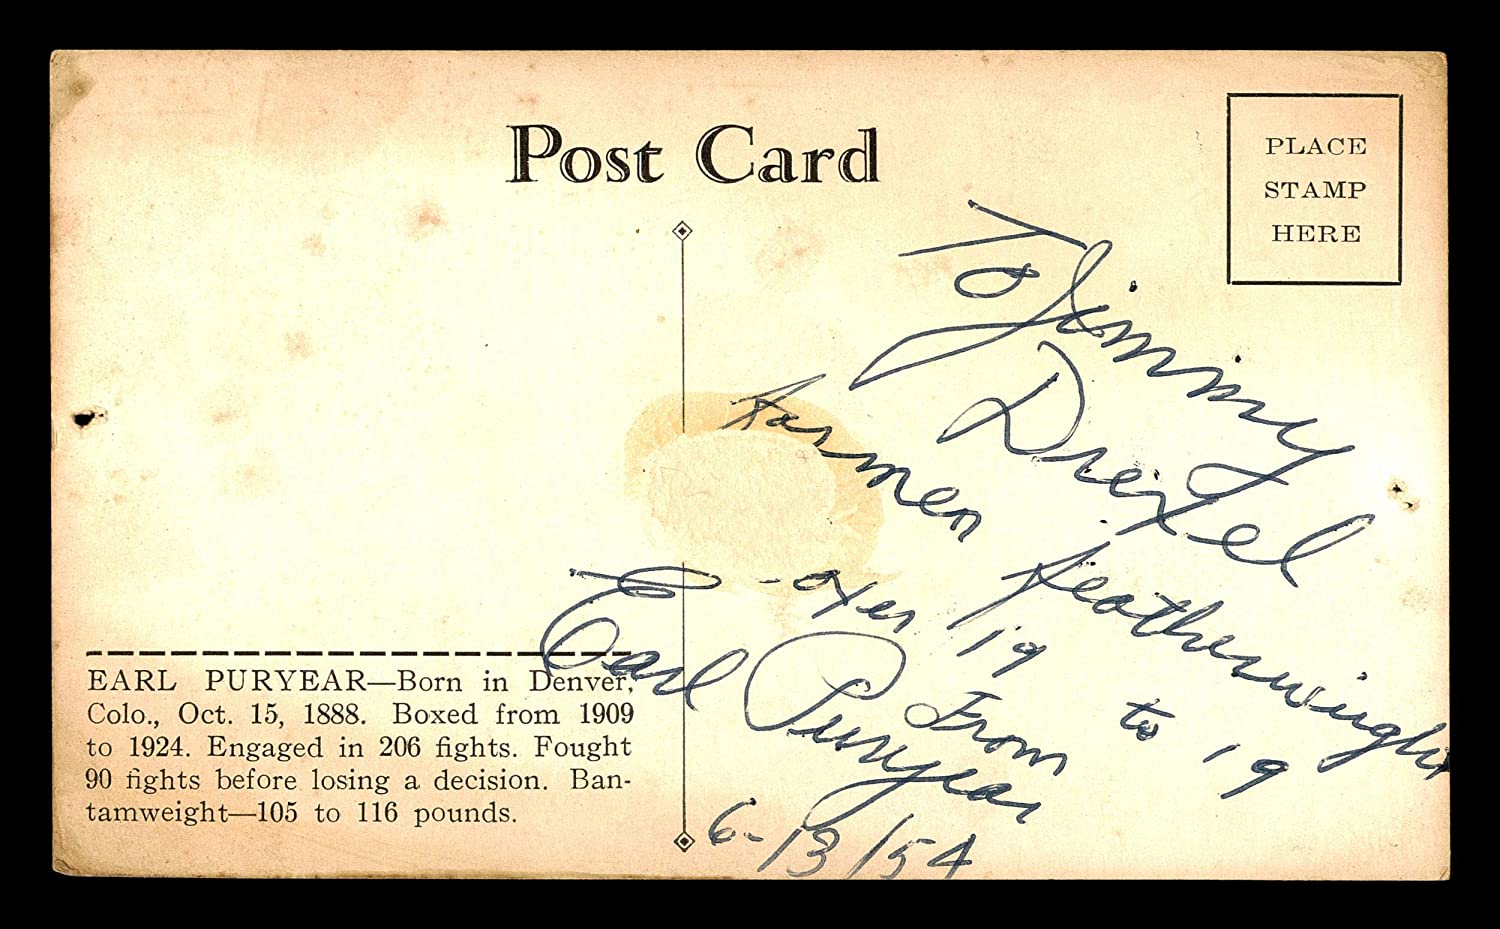 Post Card
PLACE
STAMP
HERE
To Jimmy
Drexel
Former Featherweight
-oxer 19 to 19
From
Earl Puryear
6-13/54
EARL PURYEAR—Born in Denver,
Colo., Oct. 15, 1888. Boxed from 1909
to 1924. Engaged in 206 fights. Fought
90 fights before losing a decision. Ban-
tamweight—105 to 116 pounds.